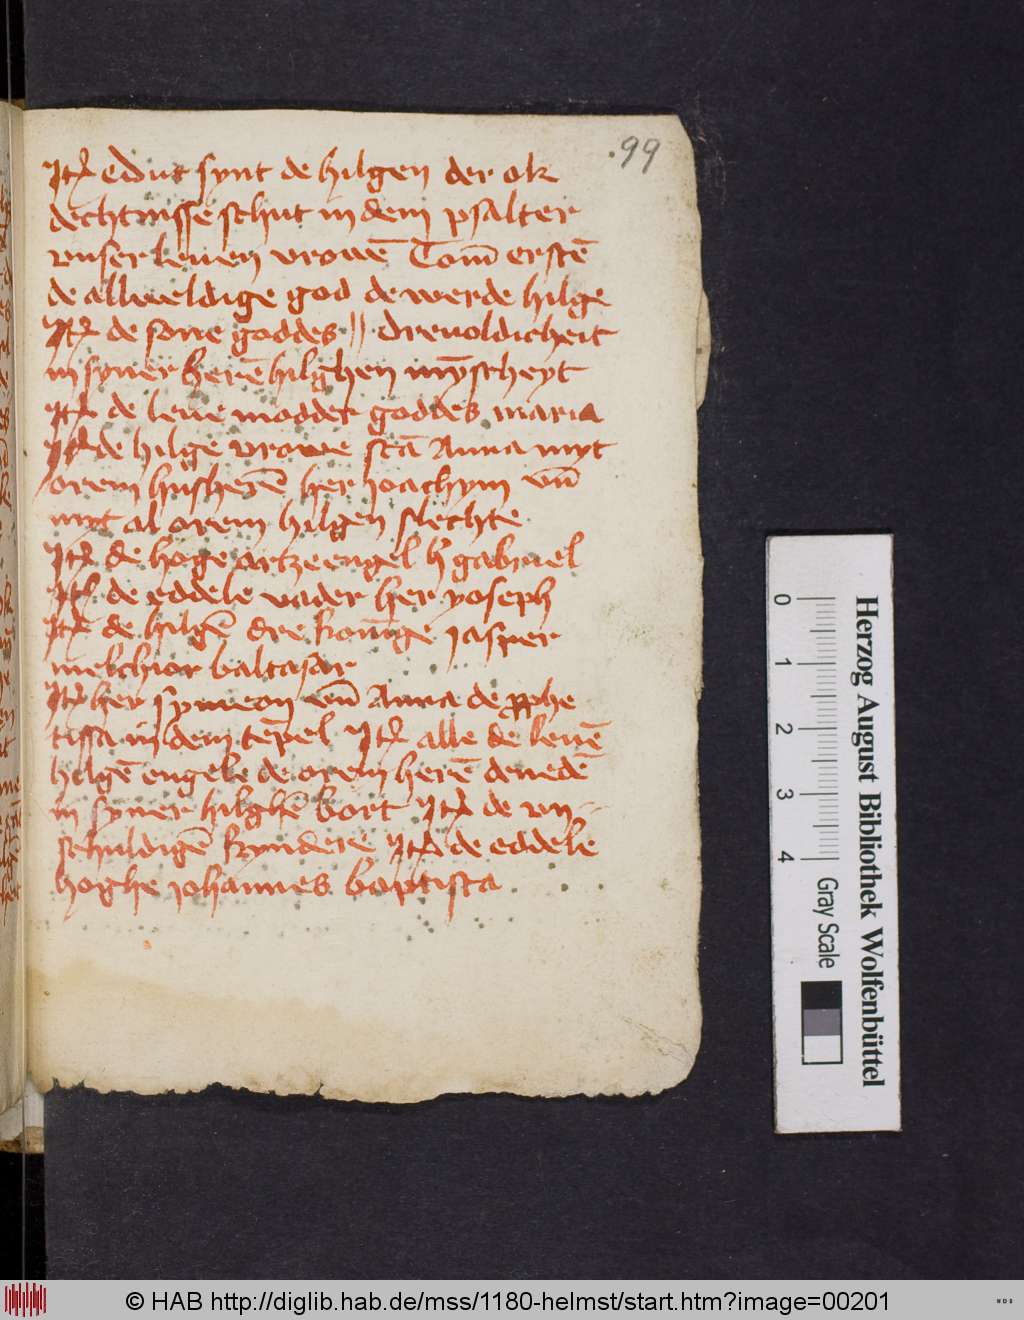 .99
Itē ed dut synt de hilgen der ok
dechtnisse schut in dem psalter
vnser leuen vrowē Tom̄ erstē
de allweldige god de werde hilge
Itē de sone goddes // dreuoldicheit
in syner herē hilghen mȳscheyt
Itē de leue modder goddes maria
Itē de hilge vrowe sctā Anna myt
orem husherē her Joachym vn̄
myt al orem hilgen slechte
Itē de hoge artzeengel h' gabriel
Itē de eddele vader her yoseph
Itē de hilgē dre konīge Jasper
melchior baltasar
Itē her symeon vn̄ Anna de ꝓphe
tissa in dem tēpel Itē alle de leuē
hilgē engele de orem herē denedē
in syner hilghē bort Itē de vn
schuldigē kyndere Itē de eddele
hoghe johannes baptista
0 1 2 3 4
Gray Scale
Herzog August Bibliothek Wolfenbüttel
© HAB http://diglib.hab.de/mss/1180-helmst/start.htm?image=00201